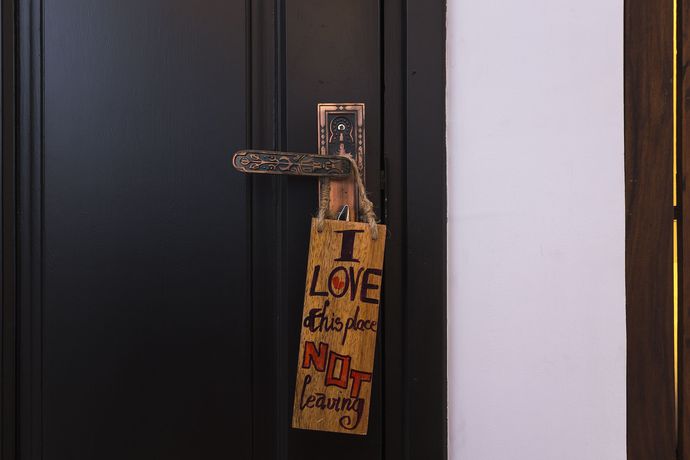 I
LOVE
this place
NOT
leaving